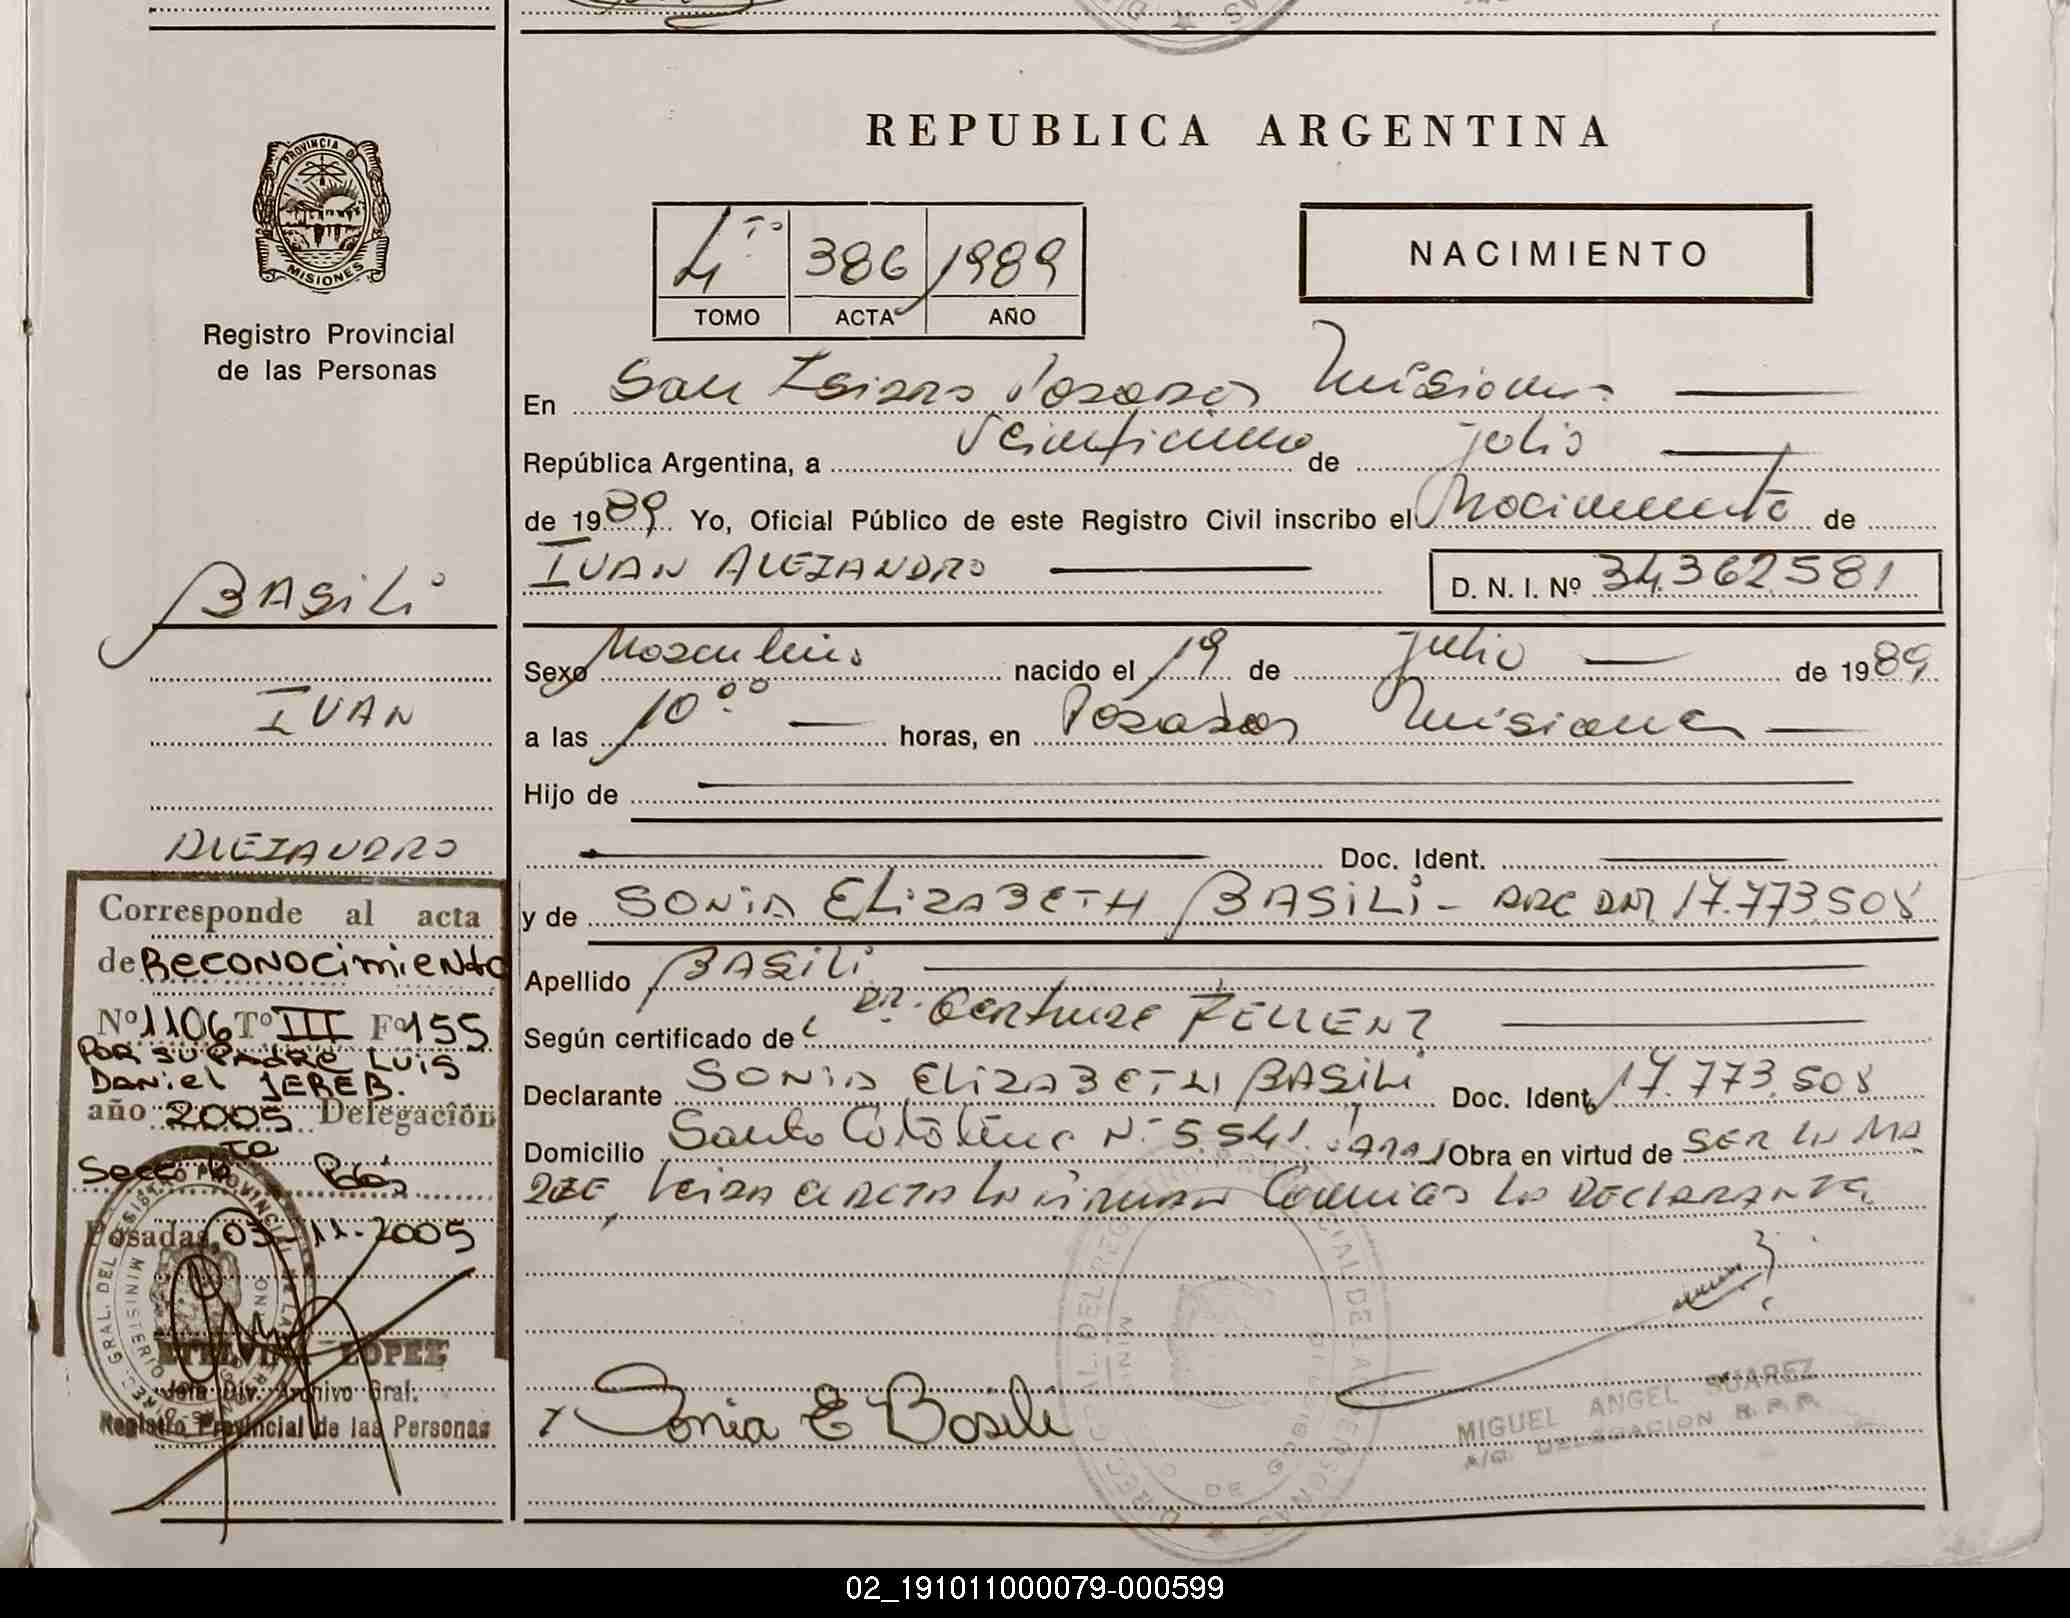 REPUBLICA ARGENTINA
PROVINCIA D
MISIONES
Registro Provincial
de las Personas
4to 386 1989
TOMO ACTA AÑO
NACIMIENTO
En San Isidro Posadas Misiones
República Argentina, a Veintiuno de julio
de 1989 Yo, Oficial Público de este Registro Civil inscribo el Nacimiento de
IVAN ALEJANDRO D. N. I. Nº 34.362.581
BASILI
IVAN
ALEJANDRO
Sexo Masculino nacido el 19 de Julio de 1989
a las 10°° horas, en Posadas Misiones
Hijo de
Doc. Ident.
y de SONIA ELIZABETH BASILI - ARG DNI 17.773.508
Apellido BASILI
Según certificado de Dr. Gertrude
Declarante SONIA ELIZABETH BASILI Doc. Ident. 17.773.508
Domicilio Santa Catalina Nº 5.541. Obra en virtud de SER LA MA
DRE, Leida el acta la firman conmigo LA DECLARANTE
Sonia E Basili
MIGUEL ANGEL SUAREZ
A/C. DELEGACION R.P.P.
Corresponde al acta
de RECONOCIMIENTO
Nº 1106 Tº III Fº 155
POR SU PADRE LUIS
DANIEL JEREB.
año 2005 Delegación
Secc 1a Pdas
Posadas, 03-11-2005
ETELVINA LOPEZ
Jefa Div. Archivo Gral.
Registro Provincial de las Personas
02_191011000079-000599